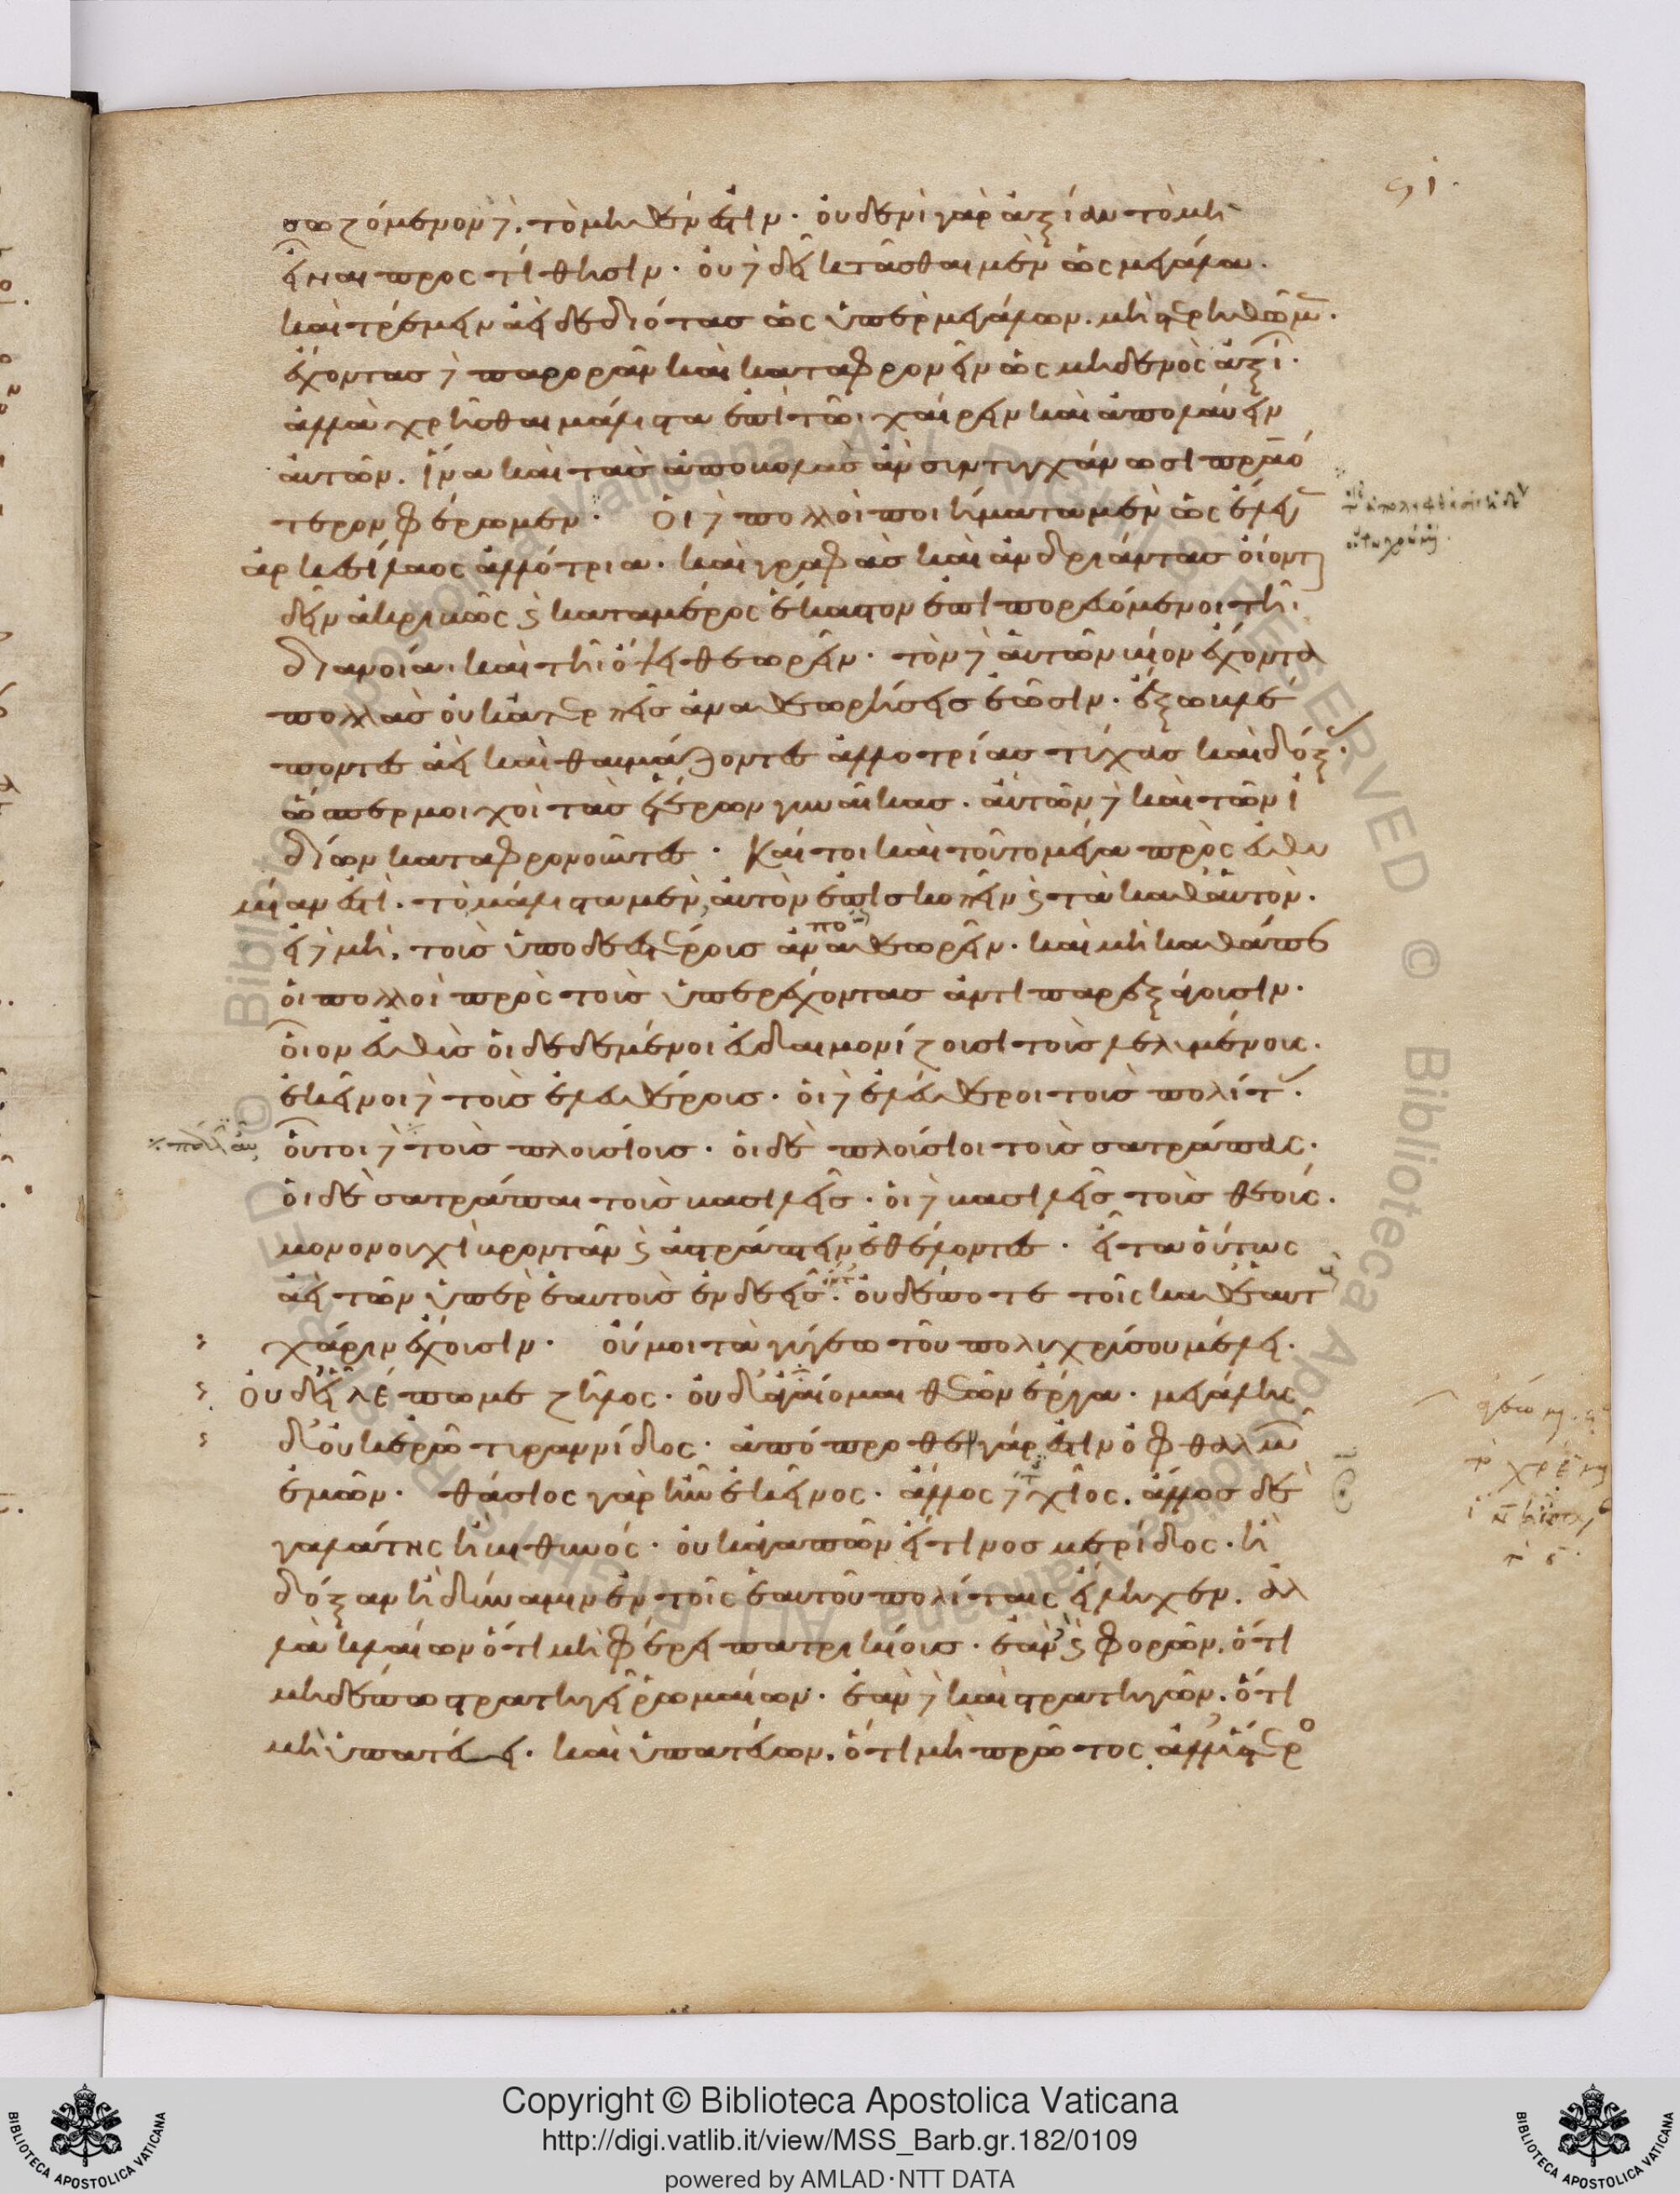 σωζόμενον δὲ, τὸ μηθέν ἐστιν. οὐδενὶ γὰρ ἀξίαν τὸ μὴ
εἶναι προστίθησιν. οὐ δεῖ κτᾶσθαι μὲν ὡς μεγάλα.
καὶ τρέμειν ἀεὶ δεδιότας ὡς ὑπὲρ μεγάλων. μὴ στερηθῶμεν.
ἔχοντας δὲ παρορᾶν καὶ καταφρονεῖν ὡς μηδενὸς ἀξίων.
ἀλλὰ χρῆσθαι μάλιστα ἐπὶ τῶι χαίρειν καὶ ἀπολαύειν
αὐτῶν. ἵνα καὶ τὰς ἀποβολὰς ἂν συντυγχάνωσι πραιό
τερον φέρωμεν. Οἱ δὲ πολλοὶ ποιήματα μὲν ὡς ἔλεγεν
ἀρκεσίλαος ἀλλότρια. καὶ γραφὰς καὶ ἀνδριάντας οἴονται
δεῖν ἀκριβῶς καὶ κατα μέρος ἕκαστον ἐπιπορευόμενοι τῆι
διανοίαι καὶ τῆι ὄψει θεωρεῖν. τὸν δὲ αὑτῶν βίον ἔχοντα
πολλὰς οὐκ ἀτερπεῖς ἀναθεωρήσεις ἐῶσιν. ἔξω βλέ
ποντες ἀεὶ καὶ θαυμάζοντες ἀλλοτρίας τύχας καὶ δόξας.
ὥσπερ μοιχοὶ τὰς ἑτέρων γυναῖκας. αὑτῶν δὲ καὶ τῶν ἰ
δίων καταφρονοῦντες. Καίτοι καὶ τοῦτο μέγα πρὸς εὐθυ
μίαν ἐστὶ. τὸ μάλιστα μὲν αὑτὸν ἐπισκοπεῖν καὶ τὰ καθ αὑτὸν.
εἰ δὲ μὴ, τοὺς ὑποδεεστέρους ἀναποθεωρεῖν. καὶ μὴ καθάπερ
οἱ πολλοὶ πρὸς τοὺς ὑπερέχοντας ἀντιπαρεξάγουσιν.
οἷον εὐθὺς οἱ δεδεμένοι εὐδαιμονίζουσι τοὺς λελυμένους.
ἐκεῖνοι δὲ τοὺς ἐλευθέρους. οἱ δὲ ἐλεύθεροι τοὺς πολίτας.
οὗτοι δὲ τοὺς πλουσίους. οἱ δὲ πλούσιοι τοὺς σατράπας.
οἱ δὲ σατράπαι τοὺς βασιλεῖς. οἱ δὲ βασιλεῖς τοὺς θεούς.
μονονουχὶ βροντᾶν καὶ ἀστράπτειν ἐθέλοντες. εἶτα οὕτως
ἀεὶ τῶν ὑπὲρ ἑαυτοὺς ἐνδεεῖς ὄντες. οὐδέποτε τοῖς καθ ἑαυτοὺς
χάριν ἔχουσιν. οὔ μοι τὰ γύγεω τοῦ πολυχρύσου μέλει.
οὐδ εἷλέ πω με ζῆλος. οὐδ ἀγαίομαι θεῶν ἔργα. μεγάλης
δ οὐκ ἐρῶ τυραννίδος. ἀπόπροθεν γάρ ἐστιν ὀφθαλμῶν
ἐμῶν. θάσιος γὰρ ἦν ἐκεῖνος. ἄλλος δέ τις χῖος. ἄλλος δὲ
γαλάτης ἢ βιθυνός. οὐκ ἀγαπῶν εἴ τινος μερίδος. ἢ
δόξαν ἢ δύναμιν ἐν τοῖς ἑαυτοῦ πολίταις εἴληχεν. ἀλ
λὰ κλαίων ὅτι μὴ φέρει πατρικίους. ἐὰν δὲ καὶ φορῶν, ὅτι
μηδέπω στρατηγεῖ ῥωμαίων. ἐὰν δὲ καὶ στρατηγῶν. ὅτι
μὴ ὑπατεύει. καὶ ὑπατεύων. ὅτι μὴ πρῶτος ἀλλ ὕστερος